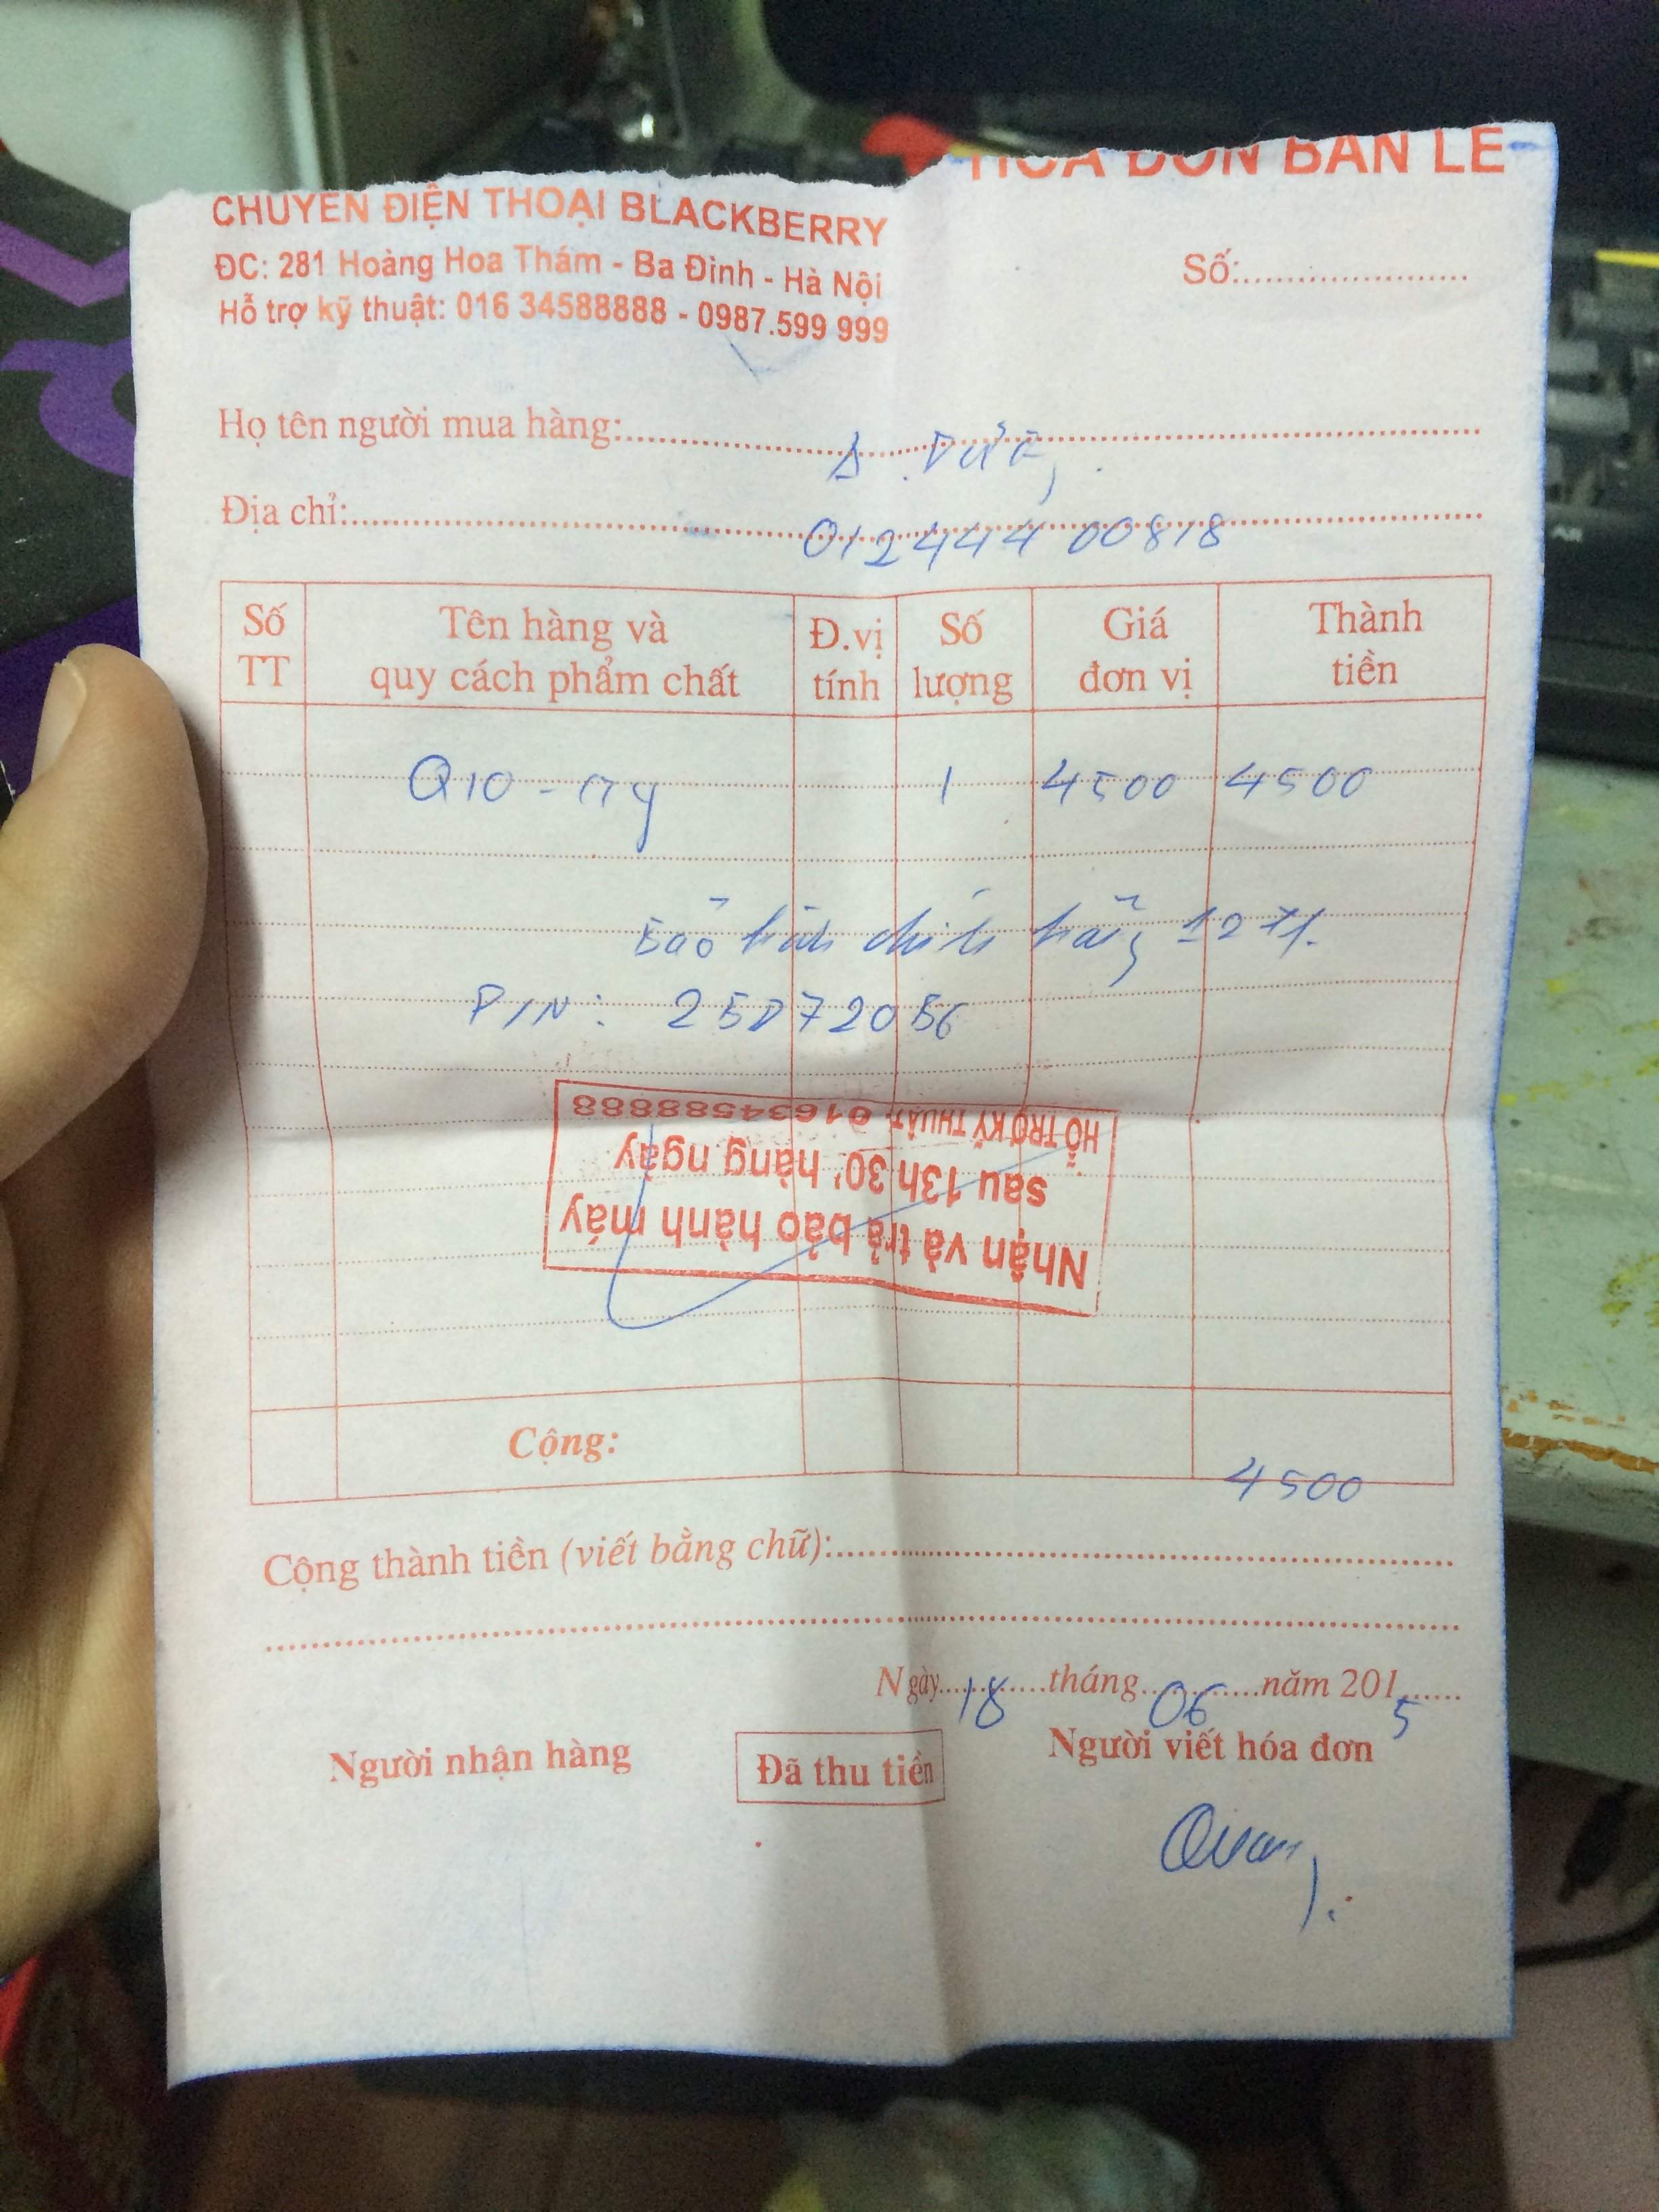 HÓA ĐƠN BÁN LẺ
CHUYÊN ĐIỆN THOẠI BLACKBERRY
ĐC: 281 Hoàng Hoa Thám - Ba Đình - Hà Nội
Số:
Hỗ trợ kỹ thuật: 016 34588888 - 0987.599 999
Họ tên người mua hàng: A. Đức
Địa chỉ: 012444 00818
Số TT
Tên hàng và quy cách phẩm chất
Đ.vị tính
Số lượng
Giá đơn vị
Thành tiền
Q10 - 1 4500 4500
Bảo hành chính hãng 12 th.
PIN: 2507 2056
Nhận và trả bảo hành máy
sau 13h 30' hàng ngày
HỖ TRỢ KỸ THUẬT: 01634588888
Cộng: 4500
Cộng thành tiền (viết bằng chữ):
Ngày 18 tháng 06 năm 2015
Người nhận hàng
Đã thu tiền
Người viết hóa đơn
Quang